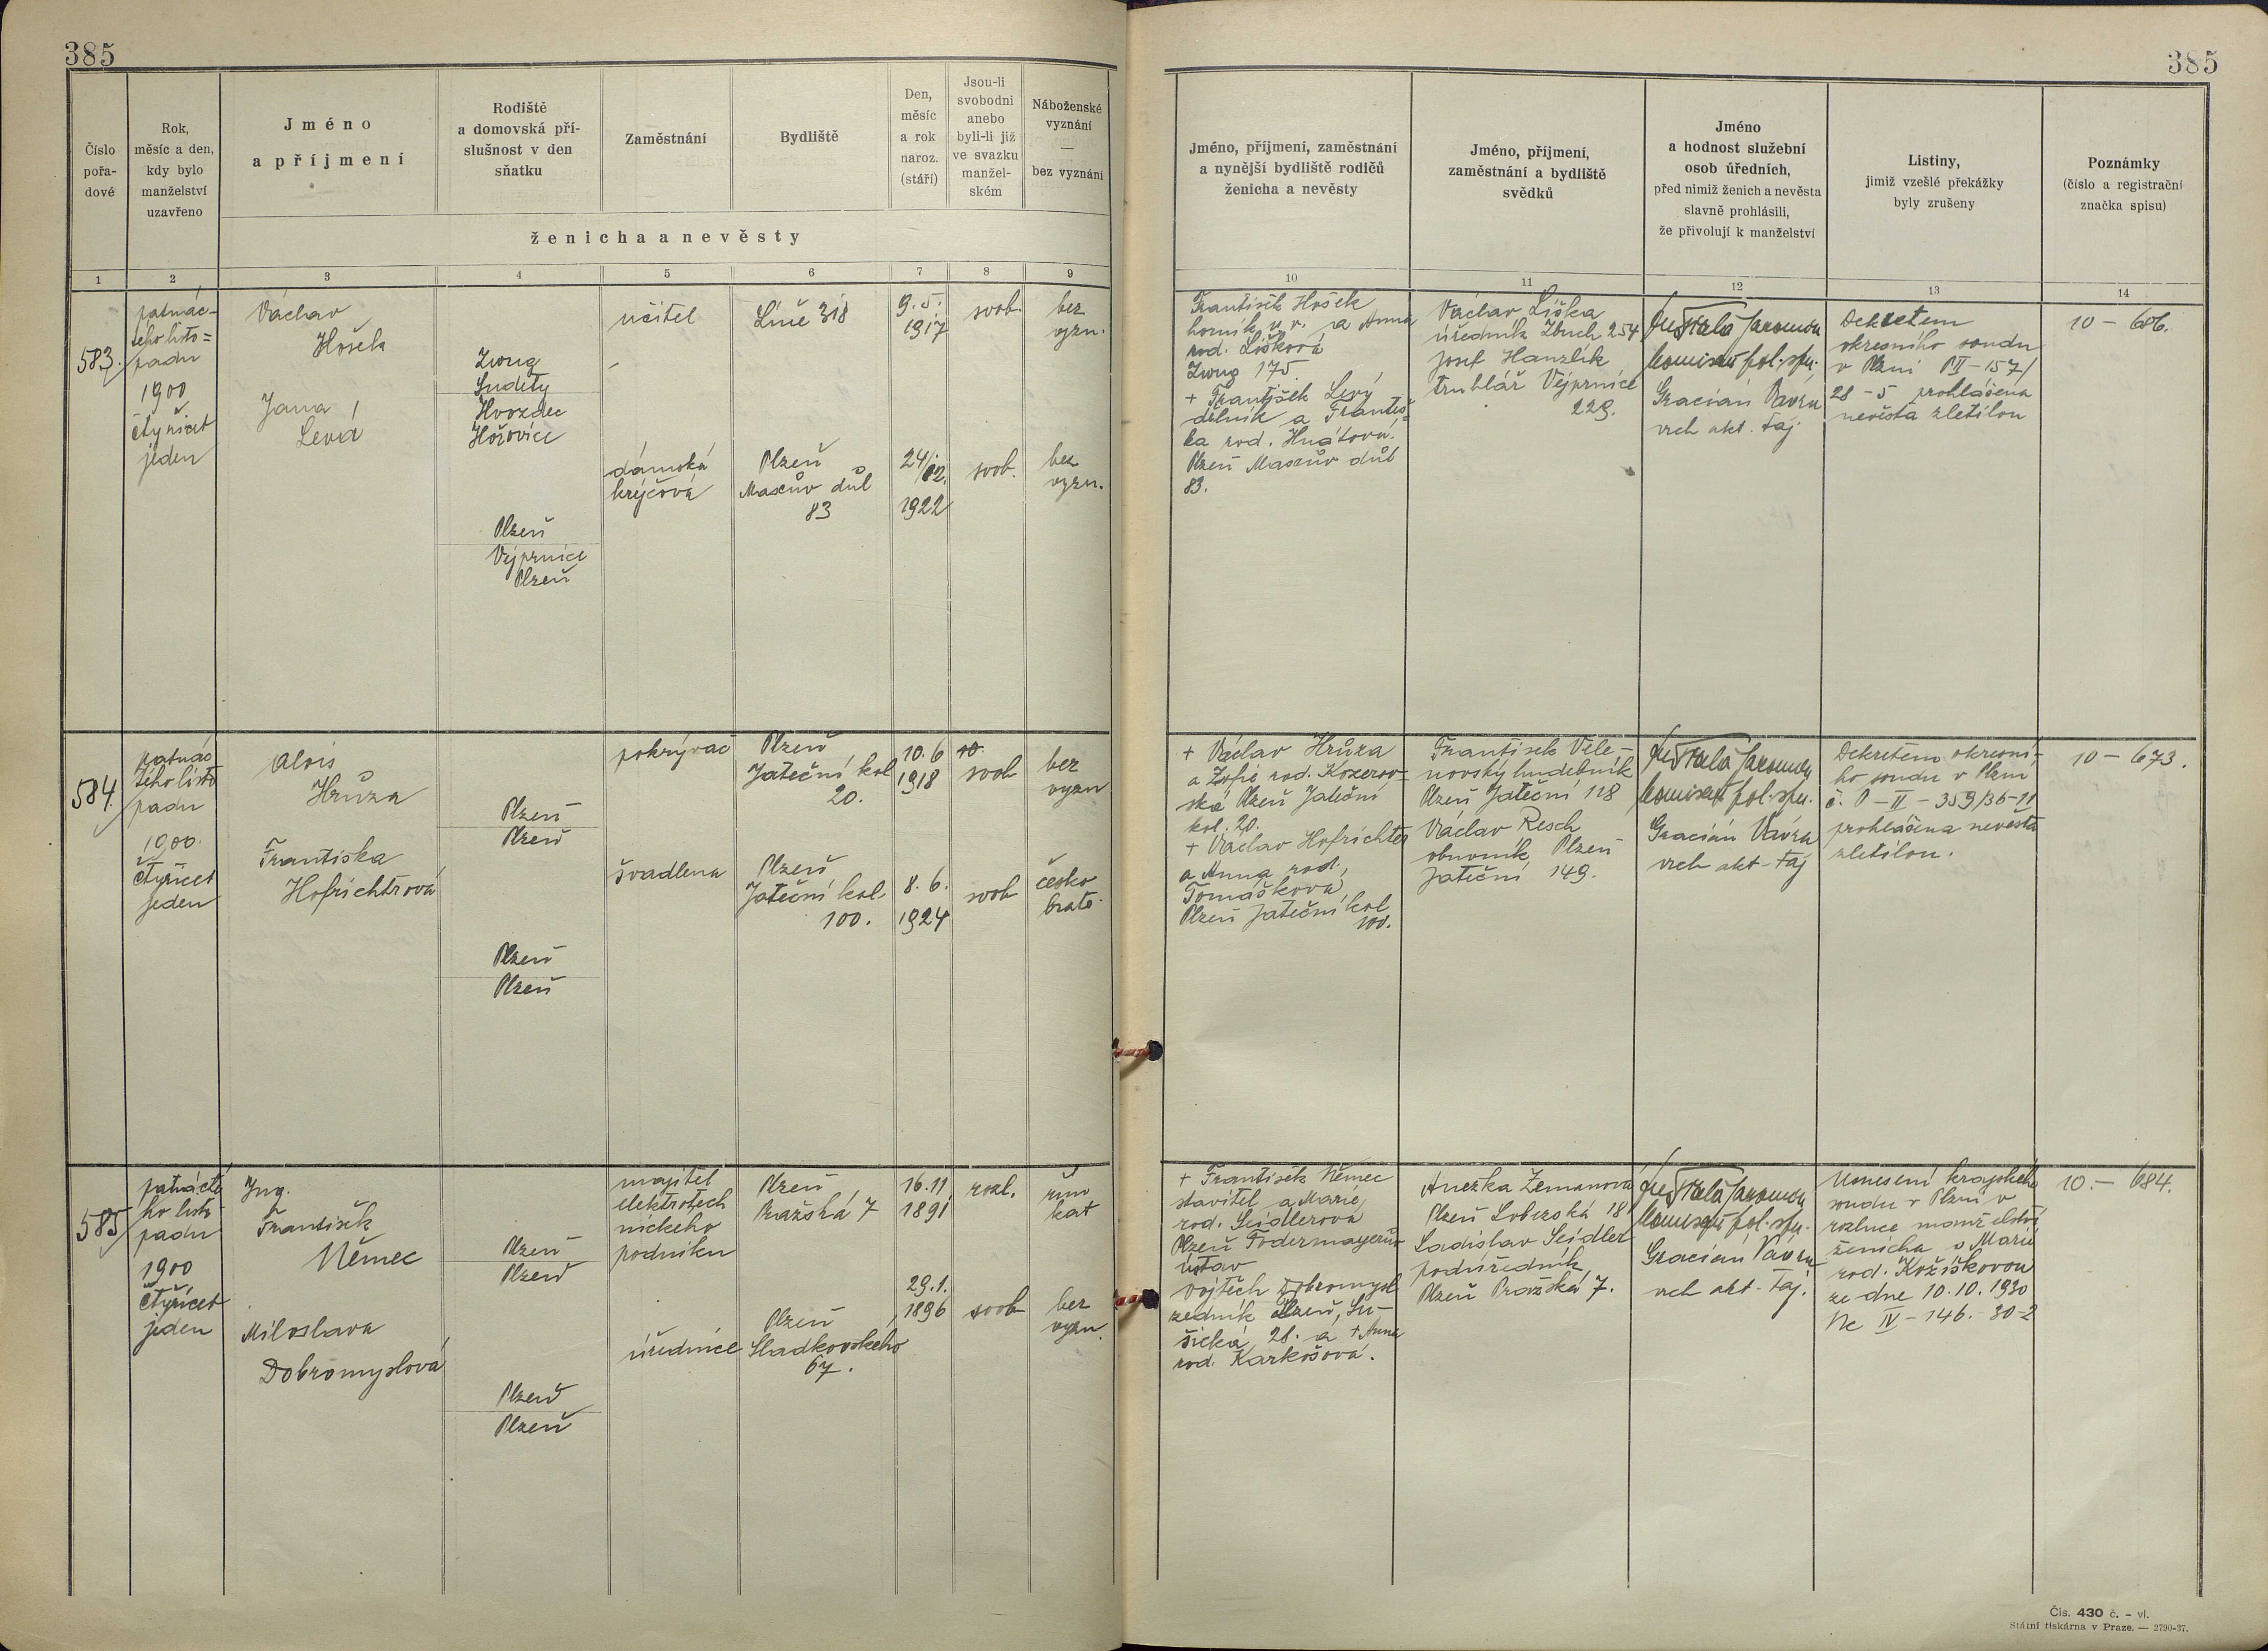 385
385
Číslo
pořa-
dové
Rok,
měsíc a den,
kdy bylo
manželství
uzavřeno
Jméno
a příjmení
Rodiště
a domovská pří-
slušnost v den
sňatku
Zaměstnání
Bydliště
Den,
měsíc
a rok
naroz.
(stáří)
Jsou-li
svobodni
anebo
byli-li již
ve svazku
manžel-
ském
Náboženské
vyznání
—
bez vyznání
ženicha a nevěsty
Jméno, příjmení, zaměstnání
a nynější bydliště rodičů
ženicha a nevěsty
Jméno, příjmení,
zaměstnání a bydliště
svědků
Jméno
a hodnost služební
osob úředních,
před nimiž ženich a nevěsta
slavně prohlásili,
že přivolují k manželství
Listiny,
jimiž vzešlé překážky
byly zrušeny
Poznámky
(číslo a registrační
značka spisu)
1 2 3 4 5 6 7 8 9 10 11 12 13 14
583.
patnác-
tého listo=
padu
1900
čtyřicet
jeden
Václav
Hošek
Zwug
Sudety
Hvozdec
Hořovice
učitel
Líně 318
9. 5.
1917
svob.
bez
vyzn.
Jana
Levá
Plzeň
Vejprnice
Plzeň
dámská
krejčová
Plzeň
Maxův důl
83
24/
12.
1922
svob.
bez
vyzn.
František Hošek
horník v. v. a Anna
rod. Lišková
Zwug 175
+ František Levý
dělník a Františ=
ka rod. Hnátová.
Plzeň Maxův důl
83.
Václav Liška
úředník Zbuch 254
Josef Hanzlík
truhlář Vejprnice
229.
komisař pol. spr.
Gracián Vávra
vrch akt. taj.
Dekretem
okresního soudu
v Plzni PII-157/
28-5 prohlášena
nevěsta zletilou
10 — 606.
584.
patnác
tého listo
padu
1900.
čtyřicet
jeden
Alois
Hrůza
Plzeň
Plzeň
pokrývač
Plzeň
Jateční kol
20.
10. 6
1918
svob
bez
vyzn
Františka
Hofrichtrová
Plzeň
Plzeň
švadlena
Plzeň
Jateční kol.
100.
8. 6.
1924
svob
česko
bratr.
+ Václav Hrůza
a Žofie rod. Kozerov=
ská Plzeň Jateční
kol. 20.
+ Václav Hofrichter
a Anna rod.
Tomášková
Plzeň Jateční kol
100.
František Vele-
novský hudebník
Plzeň Jateční 118
Václav Resch
obuvník, Plzeň
Jateční 149.
komisař pol. spr.
Gracián Vávra
vrch akt-taj
Dekretem okresní-
ho soudu v Plzni
č. P-II-359/36-11
prohlášena nevěsta
zletilou.
10 — 673.
585
patnácté
ho listo
padu
1900
čtyřicet
jeden
Ing.
František
Němec
Plzeň
Plzeň
majitel
elektrotech
nického
podniku
Plzeň
Pražská 7
16. 11
1891
rozl.
řím
kat
Miloslava
Dobromyslová
Plzeň
Plzeň
úřednice
Plzeň
Sladkovského
67.
29. 1.
1896
svob
bez
vyzn.
+ František Němec
stavitel a Marie
rod. Seidlerova
Plzeň Födermayerův
ústav
Vojtěch Dobromysl
zedník Plzeň, Su-
šická 28. a + Anna
rod. Karkošová.
Anežka Zemanova
Plzeň Lobezská 18
Ladislav Seidler
podúředník
Plzeň Pražská 7.
komisař pol. spr.
Gracián Vávra
vrch akt-taj.
Usnesení krajského
soudu v Plzni v
rozluce manželství
ženicha s Marií
rod. Kožíškovou
ze dne 10. 10. 1930
Nc IV-146.-30-2
10.— 684.
Čís. 430 č. – vl.
Státní tiskárna v Praze. — 2790-37.